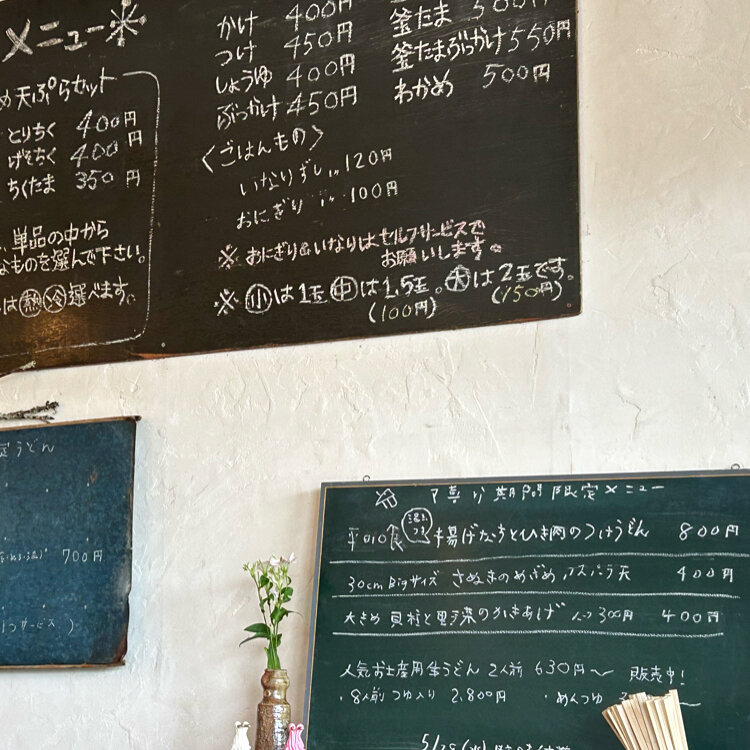 メニュー※
め天ぷらセット
とりちく 400円
げそちく 400円
ちくたま 350円
単品の中から
なものを選んで下さい。
は㊙熱 冷選べます。
かけ 400円
つけ 450円
しょうゆ 400円
ぶっかけ 450円
釜たま 500円
釜たまぶっかけ 550円
わかめ 500円
〈ごはんもの〉
いなりずし… 120円
おにぎり … 100円
※ おにぎり&いなりはセルフサービスで
お願いします。
※ 小は1玉 中は1.5玉。大は2玉です。
(100円) (150円)
定うどん
700円
1つサービス )
期間限定メニュー
平日10食 揚げなすとひき肉のつけうどん 800円
30cm Bigサイズ さぬきのめざめ アスパラ天 400円
大きめ 貝柱と野菜のかきあげ ハーフ300円 400円
人気お土産用傘うどん 2人前 630円〜 販売中!
・8人前 つゆ入り 2,800円 ・めんつゆ